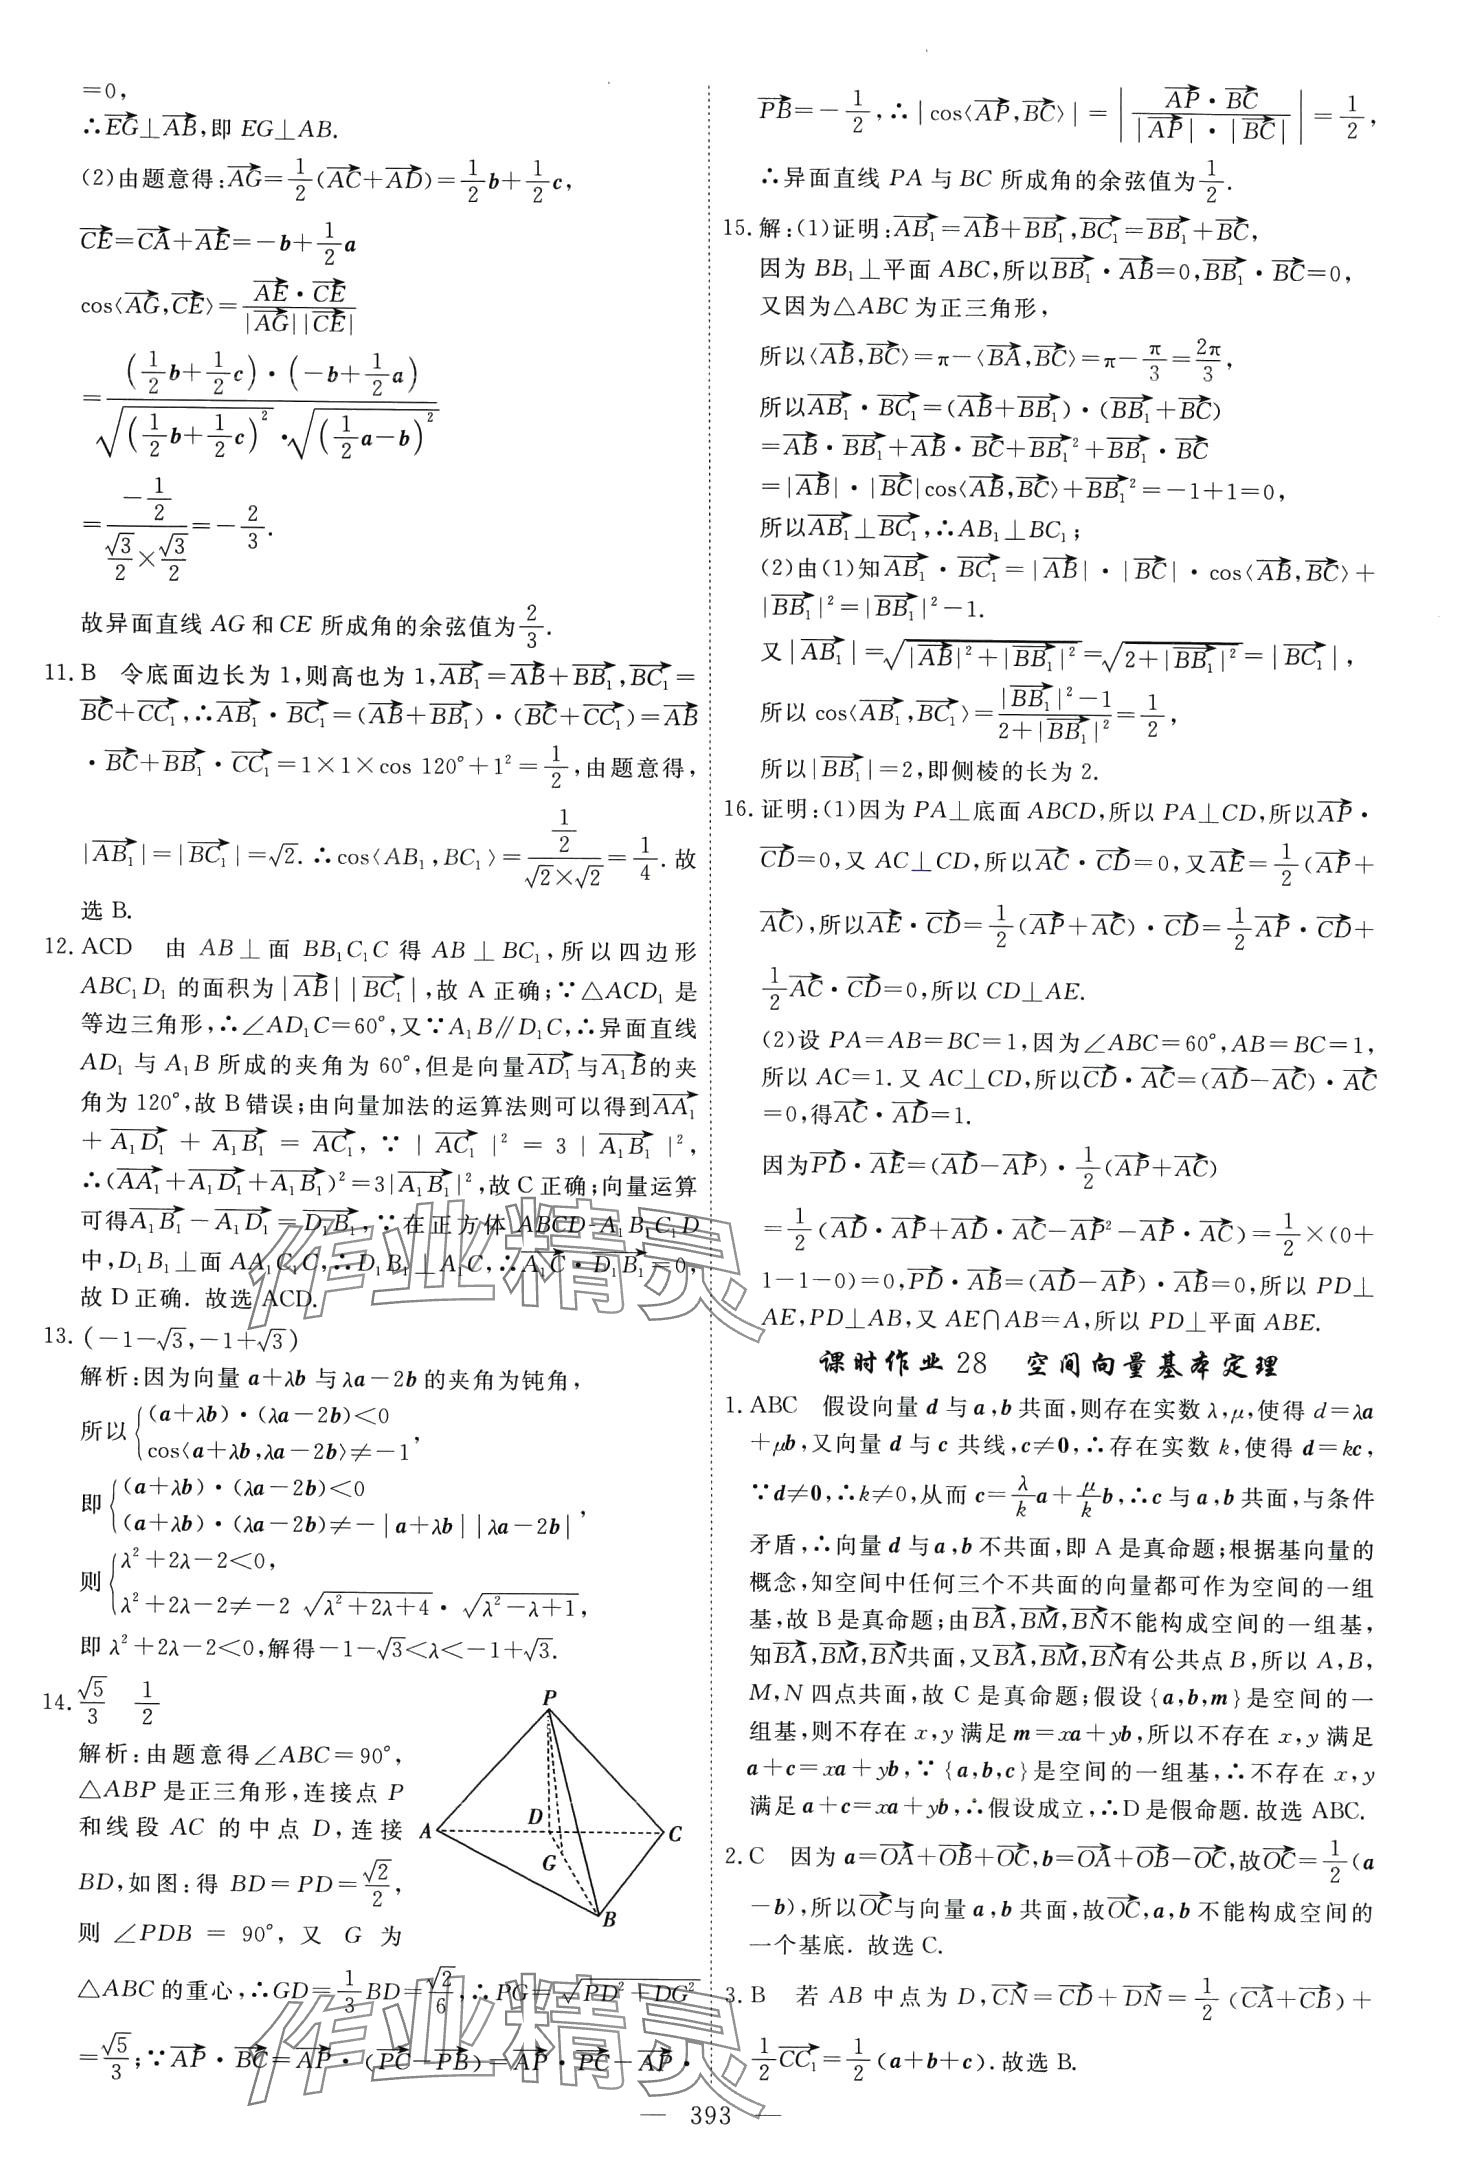 =0,
∴$\overrightarrow{EG}$⊥$\overrightarrow{AB}$,即 EG⊥AB.
(2)由题意得:$\overrightarrow{AG}=\frac{1}{2}(\overrightarrow{AC}+\overrightarrow{AD})=\frac{1}{2}b+\frac{1}{2}c$,
$\overrightarrow{CE}=\overrightarrow{CA}+\overrightarrow{AE}=-b+\frac{1}{2}a$
$\cos\langle\overrightarrow{AG},\overrightarrow{CE}\rangle=\frac{\overrightarrow{AE}\cdot\overrightarrow{CE}}{|\overrightarrow{AG}||\overrightarrow{CE}|}$
$=\frac{(\frac{1}{2}b+\frac{1}{2}c)\cdot(-b+\frac{1}{2}a)}{\sqrt{(\frac{1}{2}b+\frac{1}{2}c)^2}\cdot\sqrt{(\frac{1}{2}a-b)^2}}$
$=\frac{-\frac{1}{2}}{\frac{\sqrt{3}}{2}\times\frac{\sqrt{3}}{2}}=-\frac{2}{3}$.
故异面直线 AG 和 CE 所成角的余弦值为$\frac{2}{3}$.
11. B 令底面边长为 1,则高也为 1,$\overrightarrow{AB_1}=\overrightarrow{AB}+\overrightarrow{BB_1}$,$\overrightarrow{BC_1}$=
$\overrightarrow{BC}+\overrightarrow{CC_1}$,∴$\overrightarrow{AB_1}\cdot\overrightarrow{BC_1}=(\overrightarrow{AB}+\overrightarrow{BB_1})\cdot(\overrightarrow{BC}+\overrightarrow{CC_1})=\overrightarrow{AB}$
$\cdot\overrightarrow{BC}+\overrightarrow{BB_1}\cdot\overrightarrow{CC_1}=1\times1\times\cos120°+1^2=\frac{1}{2}$,由题意得,
$|\overrightarrow{AB_1}|=|\overrightarrow{BC_1}|=\sqrt{2}$.∴$\cos\langle AB_1,BC_1\rangle=\frac{\frac{1}{2}}{\sqrt{2}\times\sqrt{2}}=\frac{1}{4}$.故
选 B.
12. ACD 由 AB⊥面 BB₁C₁C 得 AB⊥BC₁,所以四边形
ABC₁D₁ 的面积为$|\overrightarrow{AB}||\overrightarrow{BC_1}|$,故 A 正确;∵△ACD₁ 是
等边三角形,∴∠AD₁C=60°,又∵A₁B∥D₁C,∴异面直线
AD₁ 与 A₁B 所成的夹角为 60°,但是向量$\overrightarrow{AD_1}$与$\overrightarrow{A_1B}$的夹
角为 120°,故 B 错误;由向量加法的运算法则可以得到$\overrightarrow{AA_1}$
$+\overrightarrow{A_1D_1}+\overrightarrow{A_1B_1}=\overrightarrow{AC_1}$,∵$|\overrightarrow{AC_1}|^2=3|\overrightarrow{A_1B_1}|^2$,
∴$(\overrightarrow{AA_1}+\overrightarrow{A_1D_1}+\overrightarrow{A_1B_1})^2=3|\overrightarrow{A_1B_1}|^2$,故 C 正确;向量运算
可得$\overrightarrow{A_1B_1}-\overrightarrow{A_1D_1}=\overrightarrow{D_1B_1}$,∵在正方体 ABCD-A₁B₁C₁D
中,D₁B₁⊥面 AA₁C₁C,∴D₁B₁⊥A₁C,∴$\overrightarrow{A_1C}\cdot\overrightarrow{D_1B_1}=0$,
故 D 正确. 故选 ACD.
13. $(-1-\sqrt{3},-1+\sqrt{3})$
解析:因为向量 a+λb 与 λa-2b 的夹角为钝角,
所以$\begin{cases}(a+λb)\cdot(λa-2b)<0\\\cos\langle a+λb,λa-2b\rangle≠-1\end{cases}$,
即$\begin{cases}(a+λb)\cdot(λa-2b)<0\\(a+λb)\cdot(λa-2b)≠-|a+λb||λa-2b|\end{cases}$,
则$\begin{cases}λ^2+2λ-2<0,\\λ^2+2λ-2≠-2\sqrt{λ^2+2λ+4}\cdot\sqrt{λ^2-λ+1},\end{cases}$
即 $λ^2+2λ-2<0$,解得$-1-\sqrt{3}<λ<-1+\sqrt{3}$.
14. $\frac{\sqrt{5}}{3}$ $\frac{1}{2}$
解析:由题意得∠ABC=90°,
△ABP 是正三角形,连接点 P
和线段 AC 的中点 D,连接
BD,如图:得 BD=PD=$\frac{\sqrt{2}}{2}$,
则 ∠PDB = 90°,又 G 为
P
A
D
C
G
B
△ABC 的重心,∴GD=$\frac{1}{3}$BD=$\frac{\sqrt{2}}{6}$,∴PG=$\sqrt{PD^2+DG^2}$
$=\frac{\sqrt{5}}{3}$;∵$\overrightarrow{AP}\cdot\overrightarrow{BC}=\overrightarrow{AP}\cdot(\overrightarrow{PC}-\overrightarrow{PB})=\overrightarrow{AP}\cdot\overrightarrow{PC}-\overrightarrow{AP}\cdot$
$\overrightarrow{PB}=-\frac{1}{2}$,∴$|\cos\langle\overrightarrow{AP},\overrightarrow{BC}\rangle|=\left|\frac{\overrightarrow{AP}\cdot\overrightarrow{BC}}{|\overrightarrow{AP}|\cdot|\overrightarrow{BC}|}\right|=\frac{1}{2}$,
∴异面直线 PA 与 BC 所成角的余弦值为$\frac{1}{2}$.
15. 解:(1)证明:$\overrightarrow{AB_1}=\overrightarrow{AB}+\overrightarrow{BB_1}$,$\overrightarrow{BC_1}=\overrightarrow{BB_1}+\overrightarrow{BC}$,
因为 BB₁⊥平面 ABC,所以$\overrightarrow{BB_1}\cdot\overrightarrow{AB}=0$,$\overrightarrow{BB_1}\cdot\overrightarrow{BC}=0$,
又因为△ABC 为正三角形,
所以$\langle\overrightarrow{AB},\overrightarrow{BC}\rangle=π-\langle\overrightarrow{BA},\overrightarrow{BC}\rangle=π-\frac{π}{3}=\frac{2π}{3}$,
所以$\overrightarrow{AB_1}\cdot\overrightarrow{BC_1}=(\overrightarrow{AB}+\overrightarrow{BB_1})\cdot(\overrightarrow{BB_1}+\overrightarrow{BC})$
$=\overrightarrow{AB}\cdot\overrightarrow{BB_1}+\overrightarrow{AB}\cdot\overrightarrow{BC}+\overrightarrow{BB_1}^2+\overrightarrow{BB_1}\cdot\overrightarrow{BC}$
$=|\overrightarrow{AB}|\cdot|\overrightarrow{BC}|\cos\langle\overrightarrow{AB},\overrightarrow{BC}\rangle+\overrightarrow{BB_1}^2=-1+1=0$,
所以$\overrightarrow{AB_1}⊥\overrightarrow{BC_1}$,∴AB₁⊥BC₁;
(2)由(1)知$\overrightarrow{AB_1}\cdot\overrightarrow{BC_1}=|\overrightarrow{AB}|\cdot|\overrightarrow{BC}|\cdot\cos\langle\overrightarrow{AB},\overrightarrow{BC}\rangle+$
$|\overrightarrow{BB_1}|^2=|\overrightarrow{BB_1}|^2-1$.
又$|\overrightarrow{AB_1}|=\sqrt{|\overrightarrow{AB}|^2+|\overrightarrow{BB_1}|^2}=\sqrt{2+|\overrightarrow{BB_1}|^2}=|\overrightarrow{BC_1}|$,
所以 $\cos\langle\overrightarrow{AB_1},\overrightarrow{BC_1}\rangle=\frac{|\overrightarrow{BB_1}|^2-1}{2+|\overrightarrow{BB_1}|^2}=\frac{1}{2}$,
所以$|\overrightarrow{BB_1}|=2$,即侧棱的长为 2.
16. 证明:(1)因为 PA⊥底面 ABCD,所以 PA⊥CD,所以$\overrightarrow{AP}\cdot$
$\overrightarrow{CD}=0$,又 AC⊥CD,所以$\overrightarrow{AC}\cdot\overrightarrow{CD}=0$,又$\overrightarrow{AE}=\frac{1}{2}(\overrightarrow{AP}+$
$\overrightarrow{AC})$,所以$\overrightarrow{AE}\cdot\overrightarrow{CD}=\frac{1}{2}(\overrightarrow{AP}+\overrightarrow{AC})\cdot\overrightarrow{CD}=\frac{1}{2}\overrightarrow{AP}\cdot\overrightarrow{CD}+$
$\frac{1}{2}\overrightarrow{AC}\cdot\overrightarrow{CD}=0$,所以 CD⊥AE.
(2)设 PA=AB=BC=1,因为∠ABC=60°,AB=BC=1,
所以 AC=1.又 AC⊥CD,所以$\overrightarrow{CD}\cdot\overrightarrow{AC}=(\overrightarrow{AD}-\overrightarrow{AC})\cdot\overrightarrow{AC}$
=0,得$\overrightarrow{AC}\cdot\overrightarrow{AD}=1$.
因为$\overrightarrow{PD}\cdot\overrightarrow{AE}=(\overrightarrow{AD}-\overrightarrow{AP})\cdot\frac{1}{2}(\overrightarrow{AP}+\overrightarrow{AC})$
$=\frac{1}{2}(\overrightarrow{AD}\cdot\overrightarrow{AP}+\overrightarrow{AD}\cdot\overrightarrow{AC}-\overrightarrow{AP}^2-\overrightarrow{AP}\cdot\overrightarrow{AC})=\frac{1}{2}\times(0+$
1-1-0)=0,$\overrightarrow{PD}\cdot\overrightarrow{AB}=(\overrightarrow{AD}-\overrightarrow{AP})\cdot\overrightarrow{AB}=0$,所以 PD⊥
AE,PD⊥AB,又 AE∩AB=A,所以 PD⊥平面 ABE.
课时作业 28 空间向量基本定理
1. ABC 假设向量 d 与 a,b 共面,则存在实数 λ,μ,使得 d=λa
+μb,又向量 d 与 c 共线,c≠0,∴存在实数 k,使得 d=kc,
∵d≠0,∴k≠0,从而 $c=\frac{λ}{k}a+\frac{μ}{k}b$,∴c 与 a,b 共面,与条件
矛盾,∴向量 d 与 a,b 不共面,即 A 是真命题;根据基向量的
概念,知空间中任何三个不共面的向量都可作为空间的一组
基,故 B 是真命题;由$\overrightarrow{BA},\overrightarrow{BM},\overrightarrow{BN}$不能构成空间的一组基,
知$\overrightarrow{BA},\overrightarrow{BM},\overrightarrow{BN}$共面,又$\overrightarrow{BA},\overrightarrow{BM},\overrightarrow{BN}$有公共点 B,所以 A,B,
M,N 四点共面,故 C 是真命题;假设{a,b,m}是空间的一
组基,则不存在 x,y 满足 m=xa+yb,所以不存在 x,y 满足
a+c=xa+yb,∵{a,b,c}是空间的一组基,∴不存在 x,y
满足 a+c=xa+yb,∴假设成立,∴D 是假命题.故选 ABC.
2. C 因为 $a=\overrightarrow{OA}+\overrightarrow{OB}+\overrightarrow{OC}$,$b=\overrightarrow{OA}+\overrightarrow{OB}-\overrightarrow{OC}$,故$\overrightarrow{OC}=\frac{1}{2}(a$
-b),所以$\overrightarrow{OC}$与向量 a,b 共面,故$\overrightarrow{OC}$,a,b 不能构成空间的
一个基底. 故选 C.
3. B 若 AB 中点为 D,$\overrightarrow{CN}=\overrightarrow{CD}+\overrightarrow{DN}=\frac{1}{2}(\overrightarrow{CA}+\overrightarrow{CB})+$
$\frac{1}{2}\overrightarrow{CC_1}=\frac{1}{2}(a+b+c)$.故选 B.
作业精灵
作业精灵
— 393 —